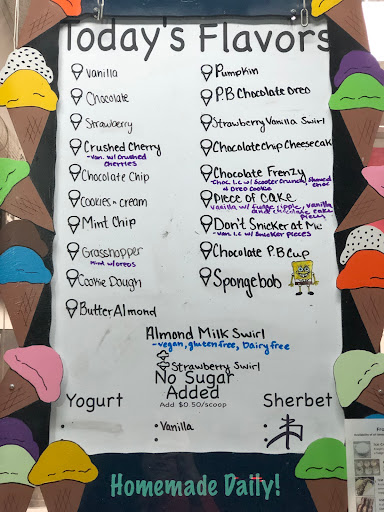 Today's Flavors
Vanilla
Chocolate
Strawberry
Crushed Cherry
-Van. w/ Crushed
Cherries
Chocolate Chip
Cookies + cream
Mint Chip
Grasshopper
Mint w/oreos
Cookie Dough
Butter Almond
Pumpkin
P.B Chocolate Oreo
Strawberry Vanilla Swirl
Chocolate Chip Cheesecake
Chocolate Frenzy
-Choc I.C w/ Scooter Crunch, Shaved choc
+ Oreo Cookie
Piece of Cake
Vanilla w/ fudge ripple, vanilla
and chocolate cake
pieces
Don't Snicker at Me
-Van. I.C w/ Snicker pieces
Chocolate P.B Cup
Spongebob
Almond Milk Swirl
-vegan, gluten free, Dairy free
Strawberry Swirl
No Sugar
Added
Add $0.50/scoop
Vanilla
Yogurt
Sherbet
Homemade Daily!